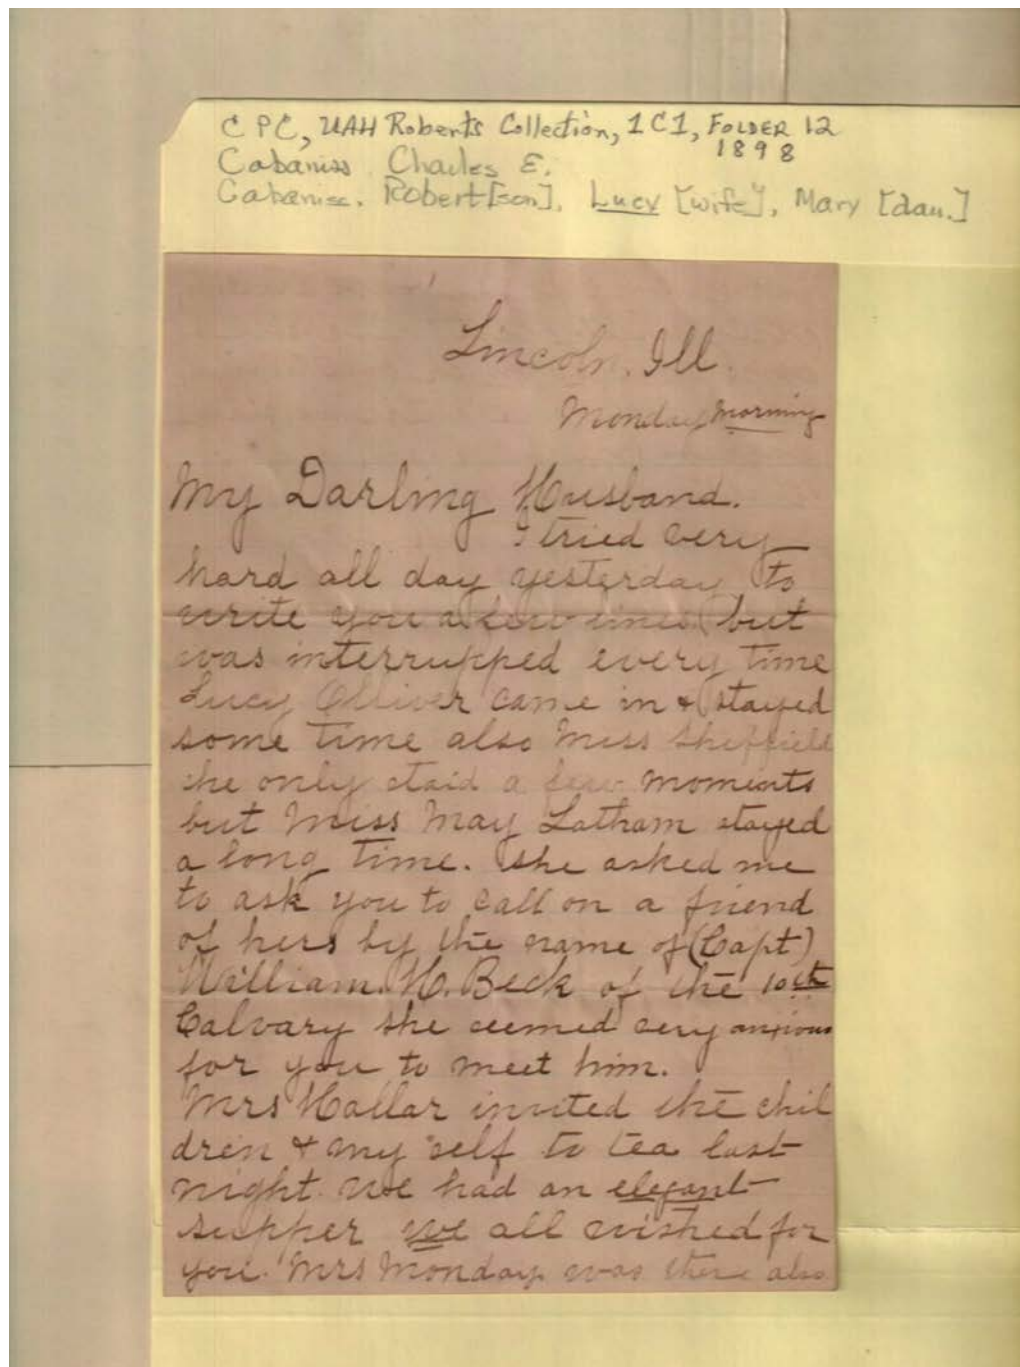 C P C, UAH Roberts Collection, 1C1, FOLDER 12
1898
Cabaniss Charles E.
Cabaniss. Robert [son], Lucy [wife], Mary [dau.]
Lincoln, Ill.
Monday morning
My Darling Husband.
I tried very
hard all day yesterday to
write you a few lines but
was interrupped every time
Lucy Olliver came in & stayed
some time also Miss Sheffield
she only staid a few moments
but Miss May Latham stayed
a long time. She asked me
to ask you to call on a friend
of hers by the name of (Capt)
William. H. Beck of the 10th
Calvary she seemed very anxious
for you to meet him.
Mrs Hallar invited the chil
dren & my self to tea last
night we had an elegant
supper we all wished for
you. Mrs Monday was there also